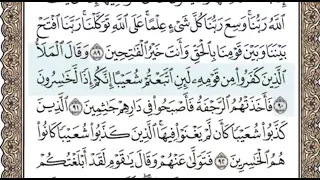 اللَّهُ رَبُّنَا وَسِعَ رَبُّنَا كُلَّ شَيْءٍ عِلْمًا عَلَى اللَّهِ تَوَكَّلْنَا رَبَّنَا افْتَحْ
بَيْنَنَا وَبَيْنَ قَوْمِنَا بِالْحَقِّ وَأَنتَ خَيْرُ الْفَاتِحِينَ ٨٩ وَقَالَ الْمَلَأُ
الَّذِينَ كَفَرُوا مِن قَوْمِهِ لَئِنِ اتَّبَعْتُمْ شُعَيْبًا إِنَّكُمْ إِذًا لَّخَاسِرُونَ
٩٠ فَأَخَذَتْهُمُ الرَّجْفَةُ فَأَصْبَحُوا فِي دَارِهِمْ جَاثِمِينَ ٩١ الَّذِينَ
كَذَّبُوا شُعَيْبًا كَأَن لَّمْ يَغْنَوْا فِيهَا الَّذِينَ كَذَّبُوا شُعَيْبًا كَانُوا
هُمُ الْخَاسِرِينَ ٩٢ فَتَوَلَّىٰ عَنْهُمْ وَقَالَ يَا قَوْمِ لَقَدْ أَبْلَغْتُكُمْ